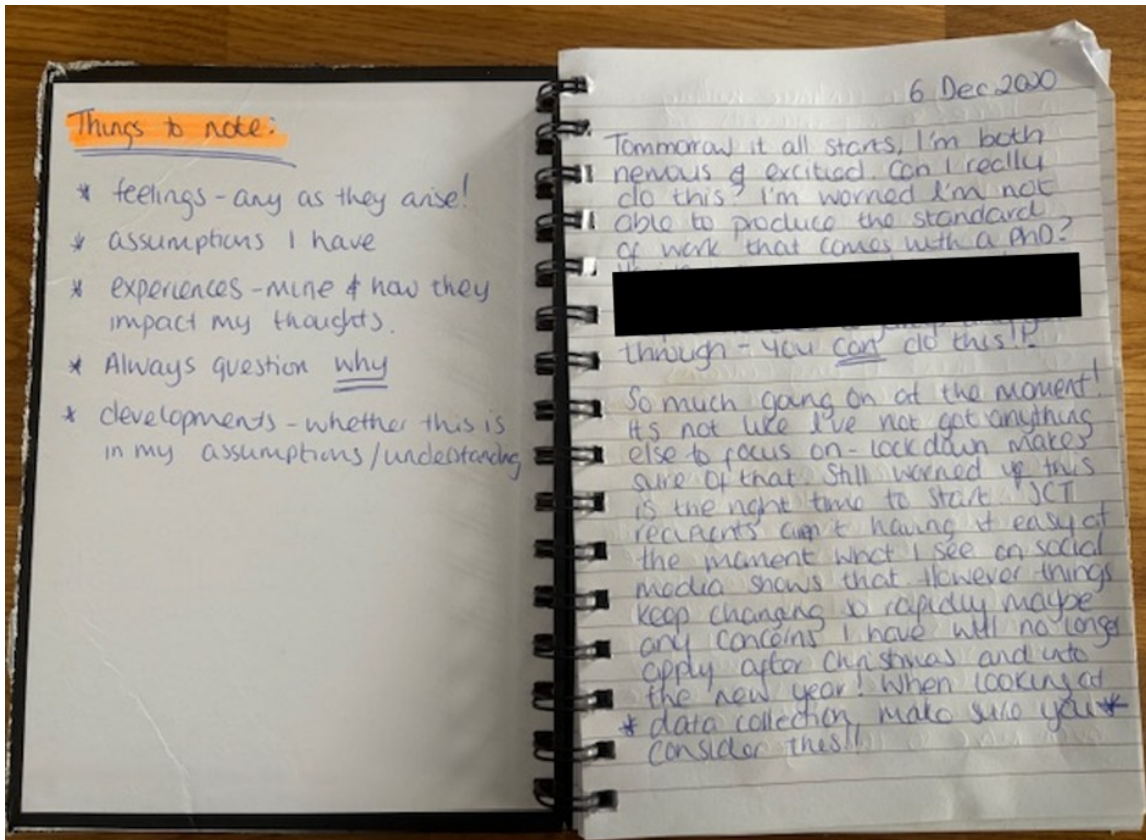 Things to note:
* feelings - any as they arise!
* assumptions I have
* experiences - mine & how they
impact my thoughts.
* Always question why
* developments - whether this is
in my assumptions/understanding
6 Dec 2020
Tommorrow it all starts, I'm both
nervous & excitied. Can I really
do this? I'm worried I'm not
able to produce the standard
of work that comes with a PhD?
through - you can do this!!
So much going on at the moment!
Its not like I've not got anything
else to focus on - lockdown makes
sure of that. Still worried if this
is the right time to start. JCT
recipients having it easy at
the moment what I see on social
media shows that. However things
keep changing so rapidly maybe
any concerns I have will no longer
apply after Christmas and into
the new year! When looking at
* data collection, make sure you *
consider this!!